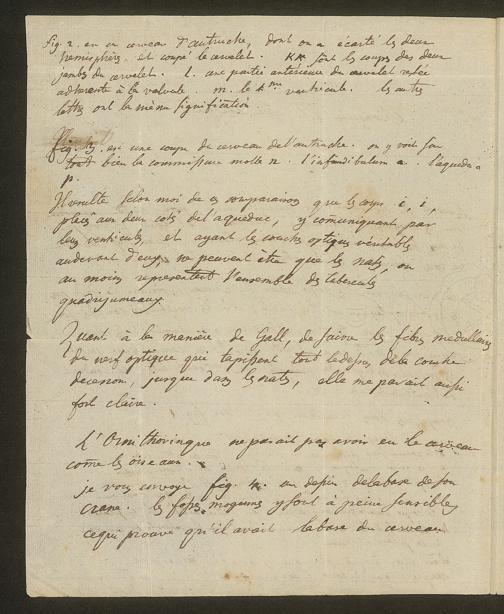 fig. 2. en un cerveau d'autruche, dont on a écarté les deux
hemisphères. et coupé le cervelet. KK sont les coupes des deux
jambes du cervelet. l. une partie antérieure du cervelet restée
adherente à la valvule. m. le 4me ventricule. les autres
lettres ont la même signification.
fig. est une coupe du cerveau de l'autruche. on y voit
bien la commissure molle n. l'infundibulum o. l'aqueduc
p.
Il resulte selon moi de ces comparaisons que les corps i, i,
placés aux deux cotés de l'aqueduc, y comuniquant par
leurs ventricules, et ayant les couches optiques véritables
audevant d'eux, ne peuvent être que les nates, ou
au moins representent l'ensemble des tubercules
quadrijumeaux.
Quant à la manière de Gall, de suivre les fibres medullaires
du nerf optique qui tapissent tout le dessus de la couche
de ce nom, jusque dans les nates, elle me parait aussi
fort claire.
L'Ornithorinque ne parait pas avoir eu le cerveau
come les oiseaux.
je vous envoye fig. un dessin de la base de son
crane. les fosses moyennes y sont à peine sensibles
ce qui prouve qu'il avait la base du cerveau